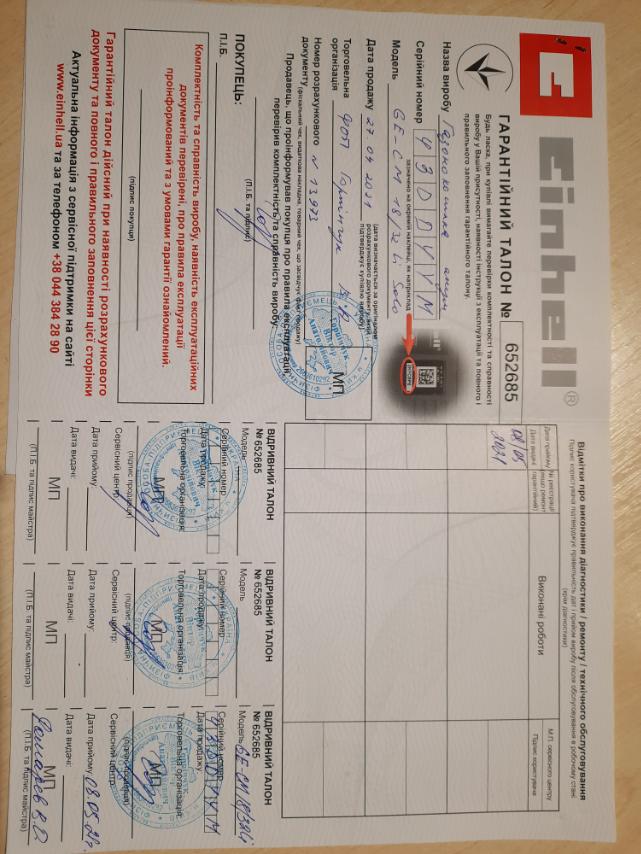 Einhell®
ГАРАНТІЙНИЙ ТАЛОН № 652685
Будь ласка, при купівлі вимагайте перевірки комплектності та справності
виробу у Вашій присутності, наявності інструкції з експлуатації та повного і
правильного заповнення гарантійного талону.
Назва виробу Газонокосарка акум
Серійний номер
зазначено на окремій наклейці, як наприклад
Модель GE-CM 18/32 Li Solo
Дата продажу 27 04 2021
(дата визначається за оригіналом
розрахункового документу, який
підтверджує купівлю виробу)
Торговельна
організація ФОП
МП
Номер розрахункового
документу N 11973
(фіскальний чек, видаткова накладна, товарний чек, що засвідчує факт продажу)
Продавець, що проінформував покупця про правила експлуатації,
перевірив комплектність та справність виробу:
(П.І.Б. та підпис)
ПОКУПЕЦЬ:
П.І.Б.
Комплектність та справність виробу, наявність експлуатаційних
документів перевірені, про правила експлуатації
проінформований та з умовами гарантії ознайомлений.
(підпис покупця)
Гарантійний талон дійсний при наявності розрахункового
документу та повного і правильного заповнення цієї сторінки
Актуальна інформація з сервісної підтримки на сайті
www.einhell.ua та за телефоном +38 044 384 28 90
Відмітки про виконання діагностики / ремонту / технічного обслуговування
Дата прийому
Дата видачі
№ реєстрації
(якщо ремонт
гарантійний)
Виконані роботи
М.П. сервісного центру
Підпис користувача
08/05
2021
ВІДРИВНИЙ ТАЛОН
№ 652685
Модель
Серійний номер
Дата продажу
Торговельна організація:
МП
(підпис продавця)
Сервісний центр:
Дата прийому:
Дата видачі:
МП
(П.І.Б. та підпис майстра)
ВІДРИВНИЙ ТАЛОН
№ 652685
Модель
Серійний номер
Дата продажу
Торговельна організація:
МП
(підпис продавця)
Сервісний центр:
Дата прийому:
Дата видачі:
МП
(П.І.Б. та підпис майстра)
ВІДРИВНИЙ ТАЛОН
№ 652685
Модель GE-CM 18/32 Li
Серійний номер
Дата продажу
Торговельна організація:
МП
(підпис продавця)
Сервісний центр:
Дата прийому 08.05.21р.
Дата видачі:
МП
(П.І.Б. та підпис майстра)